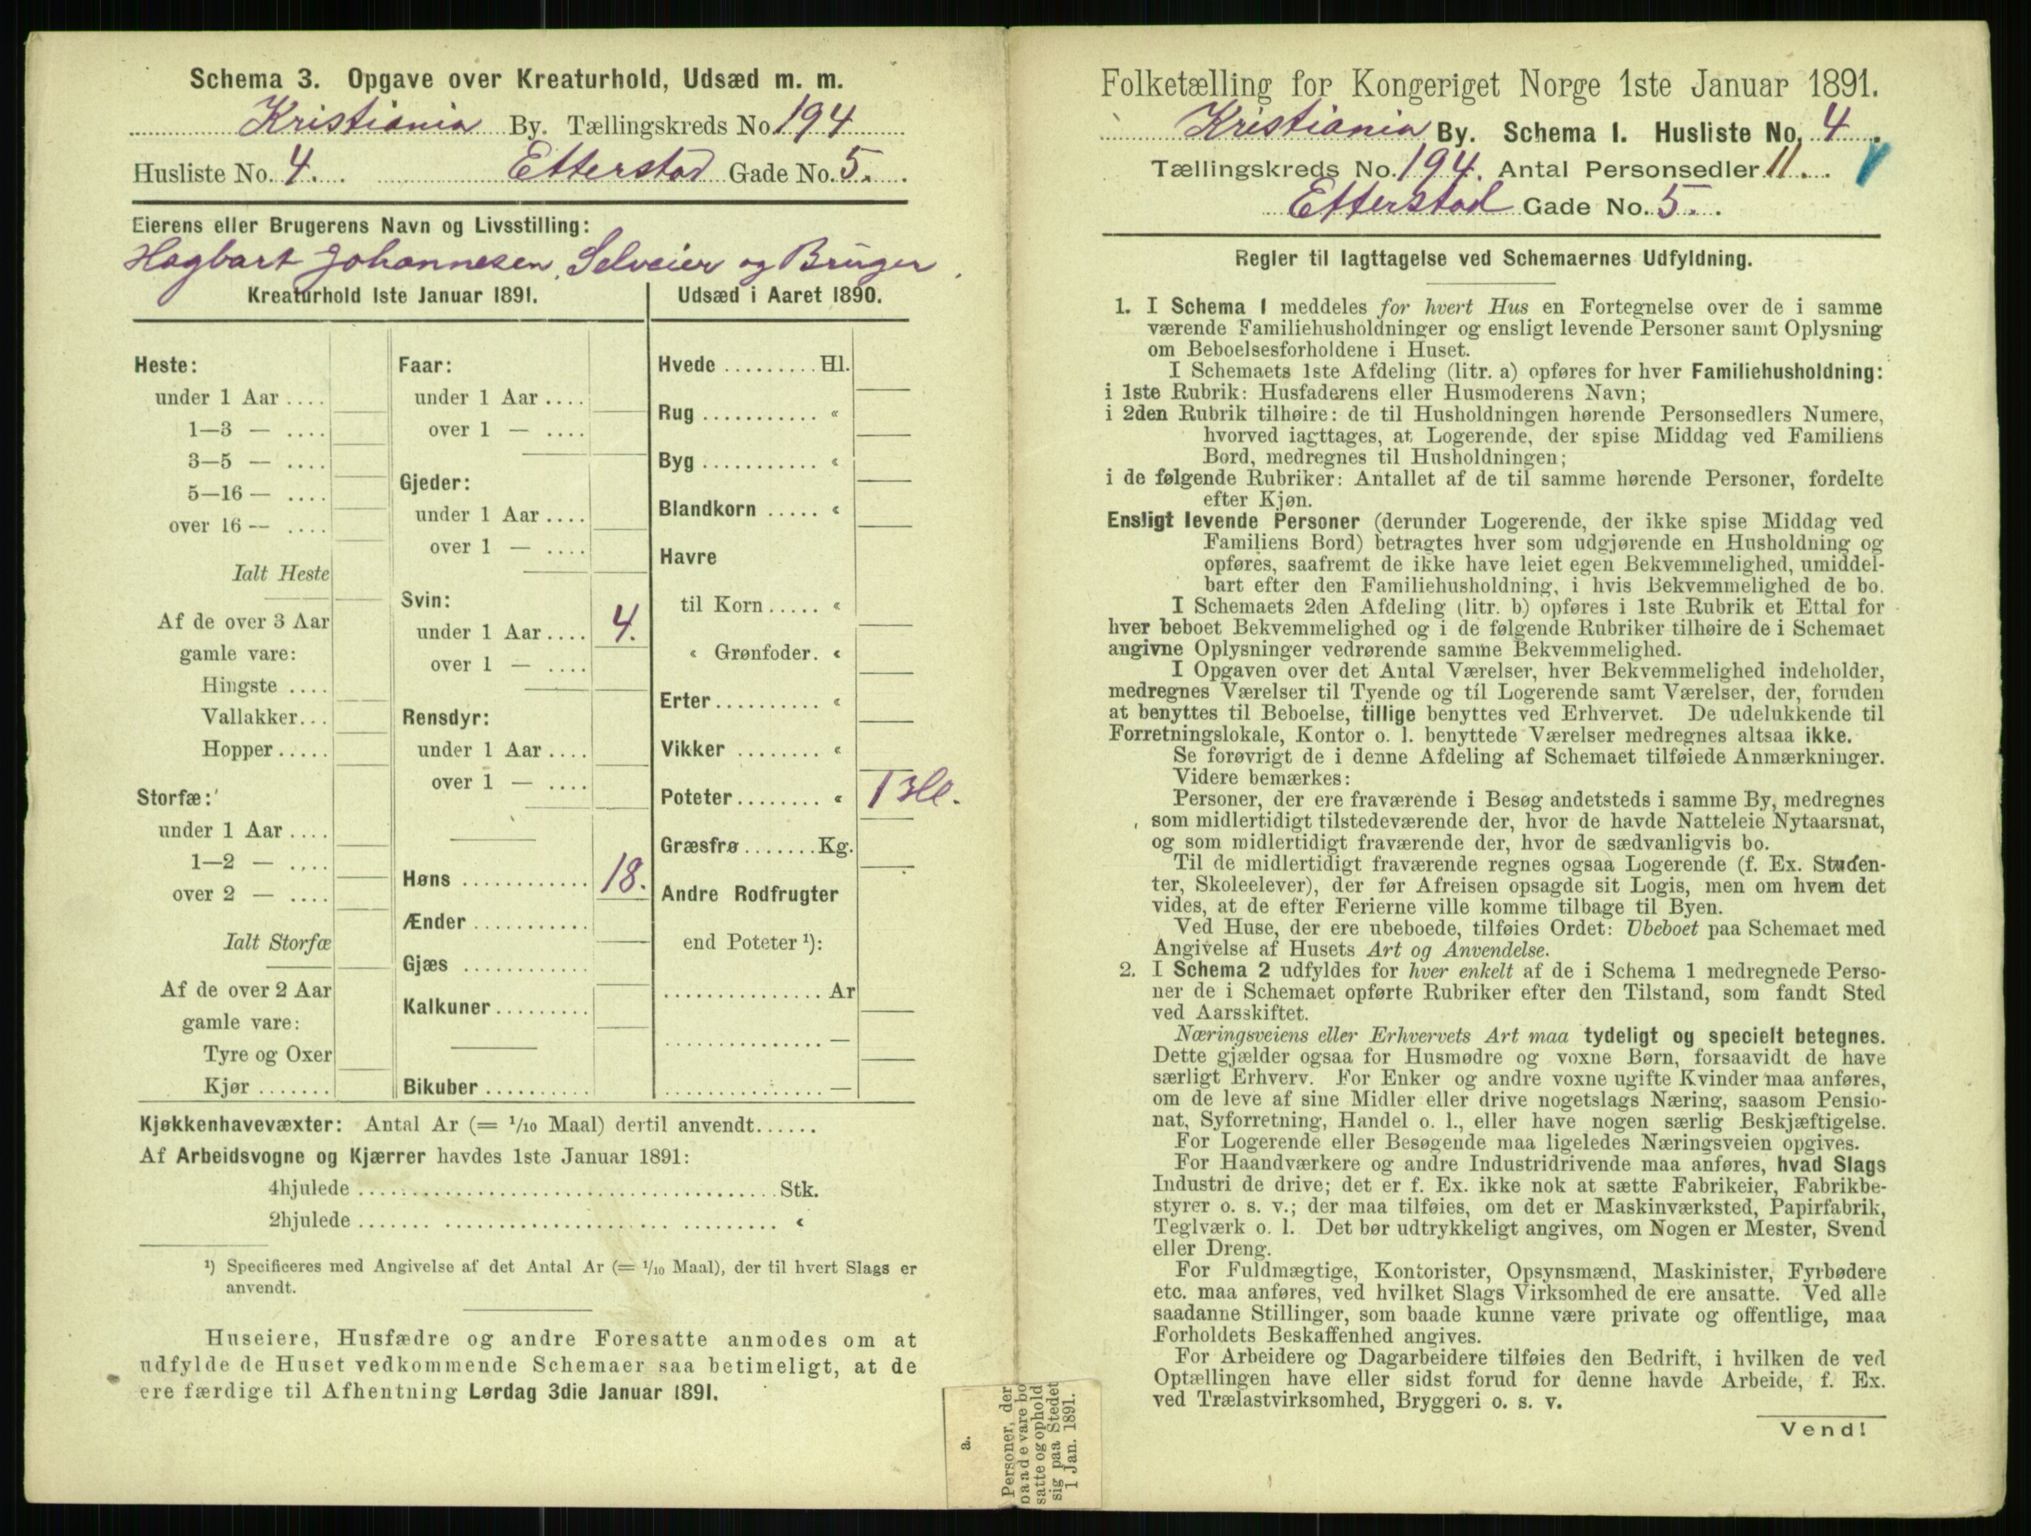 Schema 3. Opgave over Kreaturhold, Udsæd m. m.
Kristiania By. Tællingskreds No. 194
Husliste No. 4. Etterstad Gade No. 5.
Eierens eller Brugerens Navn og Livsstilling:
Hagbart Johannesen, Selveier og Bruger.
Kreaturhold 1ste Januar 1891.
Heste:
under 1 Aar ....
1—3 — ....
3—5 — ....
5—16 — ....
over 16 — ....
Ialt Heste
Af de over 3 Aar
gamle vare:
Hingste ....
Vallakker...
Hopper.....
Storfæ:
under 1 Aar ....
1—2 — ....
over 2 — ....
Ialt Storfæ
Af de over 2 Aar
gamle vare:
Tyre og Oxer
Kjør .......
Faar:
under 1 Aar ....
over 1 — ....
Gjeder:
under 1 Aar ....
over 1 — ....
Svin:
under 1 Aar .... 4.
over 1 — ....
Rensdyr:
under 1 Aar ....
over 1 — ....
Høns ............ 18.
Ænder ...........
Gjæs ............
Kalkuner.........
Bikuber ..........
Udsæd i Aaret 1890.
Hvede ......... Hl.
Rug ........... «
Byg ........... «
Blandkorn ..... «
Havre
til Korn ..... «
« Grønfoder. «
Erter.......... «
Vikker ........ «
Poteter........ « 1 Hl.
Græsfrø.......Kg.
Andre Rodfrugter
end Poteter ¹):
............... Ar
............... —
............... —
Kjøkkenhavevæxter: Antal Ar (= 1/10 Maal) dertil anvendt......
Af Arbeidsvogne og Kjærrer havdes 1ste Januar 1891:
4hjulede ........................................ Stk.
2hjulede ........................................ «
¹) Specificeres med Angivelse af det Antal Ar (= 1/10 Maal), der til hvert Slags er
anvendt.
Huseiere, Husfædre og andre Foresatte anmodes om at
udfylde de Huset vedkommende Schemaer saa betimeligt, at de
ere færdige til Afhentning Lørdag 3die Januar 1891.
a.
Personer, der
paa de vare bo
satte og ophold
sig paa Stedet
1 Jan. 1891.
Folketælling for Kongeriget Norge 1ste Januar 1891.
Kristiania By. Schema 1. Husliste No. 4.
Tællingskreds No. 194. Antal Personsedler 11.
Etterstad Gade No. 5.
Regler til Iagttagelse ved Schemaernes Udfyldning.
1. I Schema 1 meddeles for hvert Hus en Fortegnelse over de i samme
værende Familiehusholdninger og ensligt levende Personer samt Oplysning
om Beboelsesforholdene i Huset.
I Schemaets 1ste Afdeling (litr. a) opføres for hver Familiehusholdning:
i 1ste Rubrik: Husfaderens eller Husmoderens Navn;
i 2den Rubrik tilhøire: de til Husholdningen hørende Personsedlers Numere,
hvorved iagttages, at Logerende, der spise Middag ved Familiens
Bord, medregnes til Husholdningen;
i de følgende Rubriker: Antallet af de til samme hørende Personer, fordelte
efter Kjøn.
Ensligt levende Personer (derunder Logerende, der ikke spise Middag ved
Familiens Bord) betragtes hver som udgjørende en Husholdning og
opføres, saafremt de ikke have leiet egen Bekvemmelighed, umiddel-
bart efter den Familiehusholdning, i hvis Bekvemmelighed de bo.
I Schemaets 2den Afdeling (litr. b) opføres i 1ste Rubrik et Ettal for
hver beboet Bekvemmelighed og i de følgende Rubriker tilhøire de i Schemaet
angivne Oplysninger vedrørende samme Bekvemmelighed.
I Opgaven over det Antal Værelser, hver Bekvemmelighed indeholder,
medregnes Værelser til Tyende og til Logerende samt Værelser, der, foruden
at benyttes til Beboelse, tillige benyttes ved Erhvervet. De udelukkende til
Forretningslokale, Kontor o. l. benyttede Værelser medregnes altsaa ikke.
Se forøvrigt de i denne Afdeling af Schemaet tilføiede Anmærkninger.
Videre bemærkes:
Personer, der ere fraværende i Besøg andetsteds i samme By, medregnes
som midlertidigt tilstedeværende der, hvor de havde Natteleie Nytaarsnat,
og som midlertidigt fraværende der, hvor de sædvanligvis bo.
Til de midlertidigt fraværende regnes ogsaa Logerende (f. Ex. Studen-
ter, Skoleelever), der før Afreisen opsagde sit Logis, men om hvem det
vides, at de efter Ferierne ville komme tilbage til Byen.
Ved Huse, der ere ubeboede, tilføies Ordet: Ubeboet paa Schemaet med
Angivelse af Husets Art og Anvendelse.
2. I Schema 2 udfyldes for hver enkelt af de i Schema 1 medregnede Perso-
ner de i Schemaet opførte Rubriker efter den Tilstand, som fandt Sted
ved Aarsskiftet.
Næringsveiens eller Erhvervets Art maa tydeligt og specielt betegnes.
Dette gjælder ogsaa for Husmødre og voxne Børn, forsaavidt de have
særligt Erhverv. For Enker og andre voxne ugifte Kvinder maa anføres,
om de leve af sine Midler eller drive nogetslags Næring, saasom Pensio-
nat, Syforretning, Handel o. l., eller have nogen særlig Beskjæftigelse.
For Logerende eller Besøgende maa ligeledes Næringsveien opgives.
For Haandværkere og andre Industridrivende maa anføres, hvad Slags
Industri de drive; det er f. Ex. ikke nok at sætte Fabrikeier, Fabrikbe-
styrer o. s. v.; der maa tilføies, om det er Maskinværksted, Papirfabrik,
Teglværk o. l. Det bør udtrykkeligt angives, om Nogen er Mester, Svend
eller Dreng.
For Fuldmægtige, Kontorister, Opsynsmænd, Maskinister, Fyrbødere
etc. maa anføres, ved hvilket Slags Virksomhed de ere ansatte. Ved alle
saadanne Stillinger, som baade kunne være private og offentlige, maa
Forholdets Beskaffenhed angives.
For Arbeidere og Dagarbeidere tilføies den Bedrift, i hvilken de ved
Optællingen have eller sidst forud for denne havde Arbeide, f. Ex.
ved Trælastvirksomhed, Bryggeri o. s. v.
Vend!